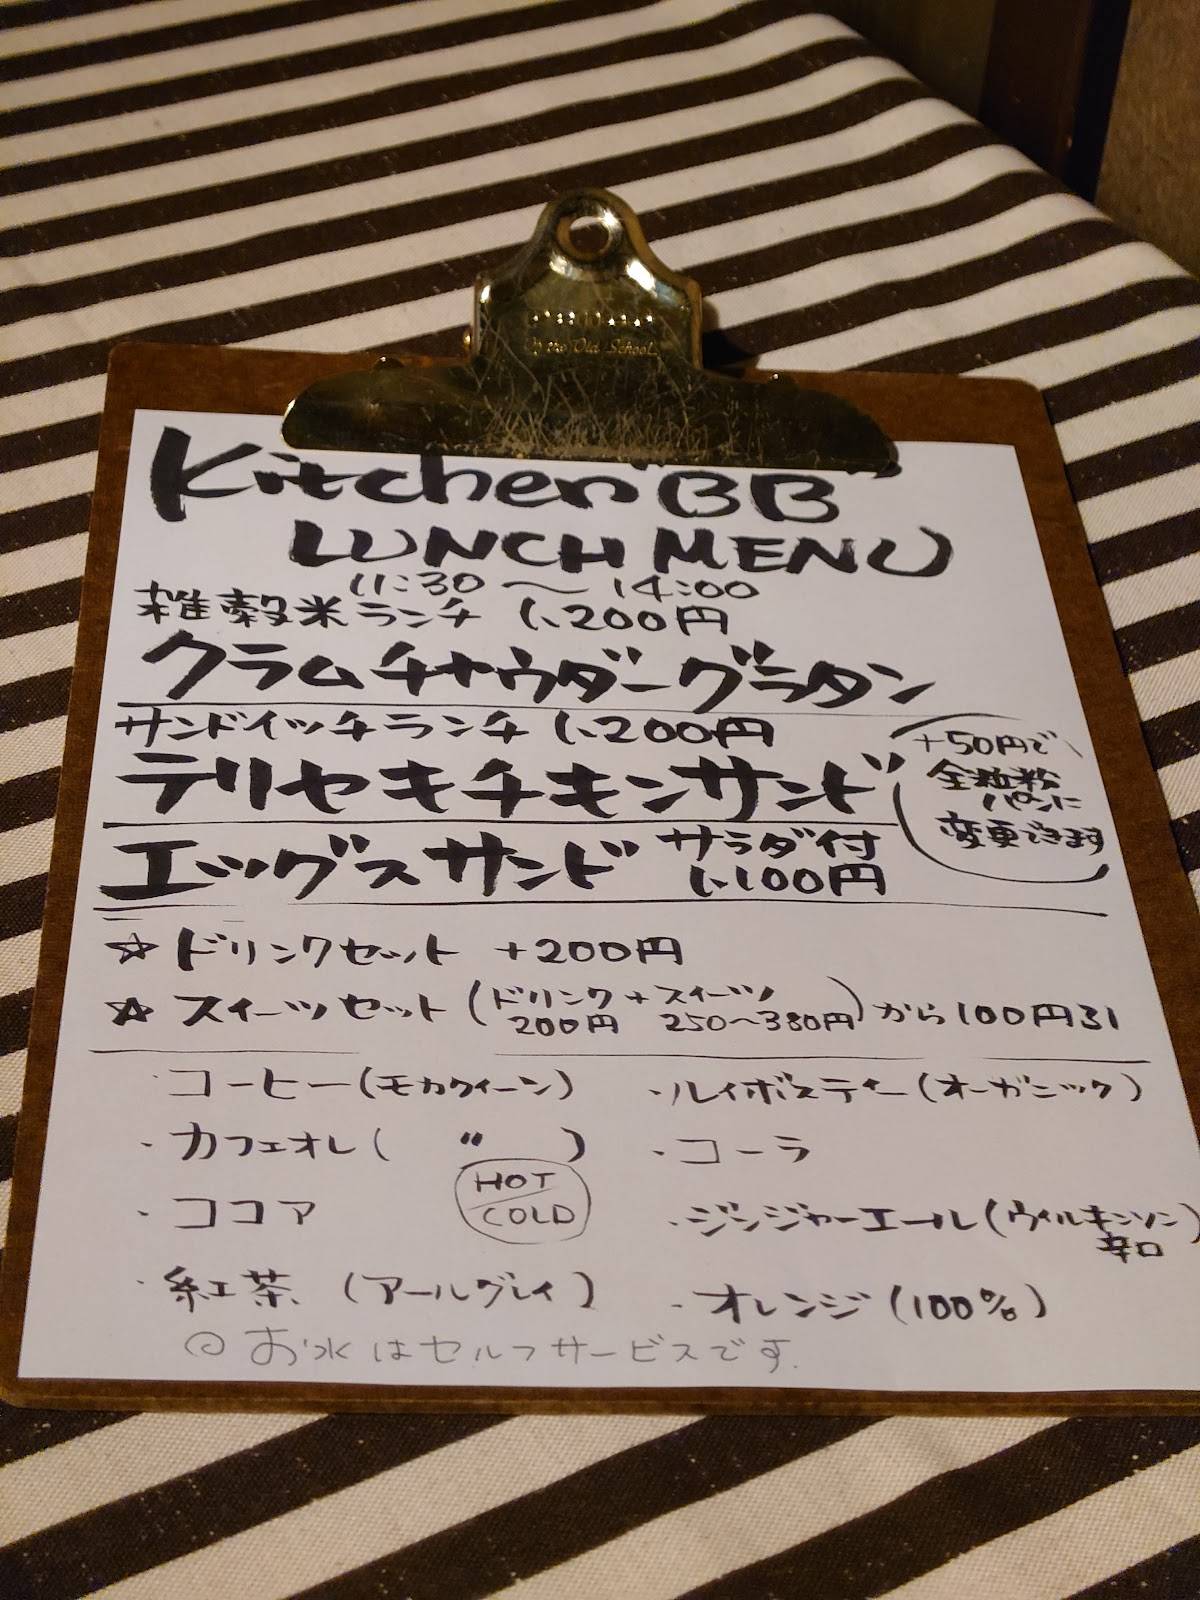 By the Old School
Kitchen "BB"
LUNCH MENU
11:30～14:00
雑穀米ランチ 1,200円
クラムチャウダーグラタン
サンドイッチランチ 1,200円
テリヤキチキンサンド
+50円で
全粒粉
パンに
変更できます
エッグスサンド サラダ付
1,100円
☆ドリンクセット +200円
☆スイーツセット(ドリンク+スイーツ
200円 250～380円)から100円引
・コーヒー(モカクイーン)
・カフェオレ( 〃 )
HOT
COLD
・ココア
・紅茶(アールグレイ)
・ルイボスティー(オーガニック)
・コーラ
・ジンジャーエール(ウィルキンソン)
辛口
・オレンジ(100%)
◎お水はセルフサービスです.